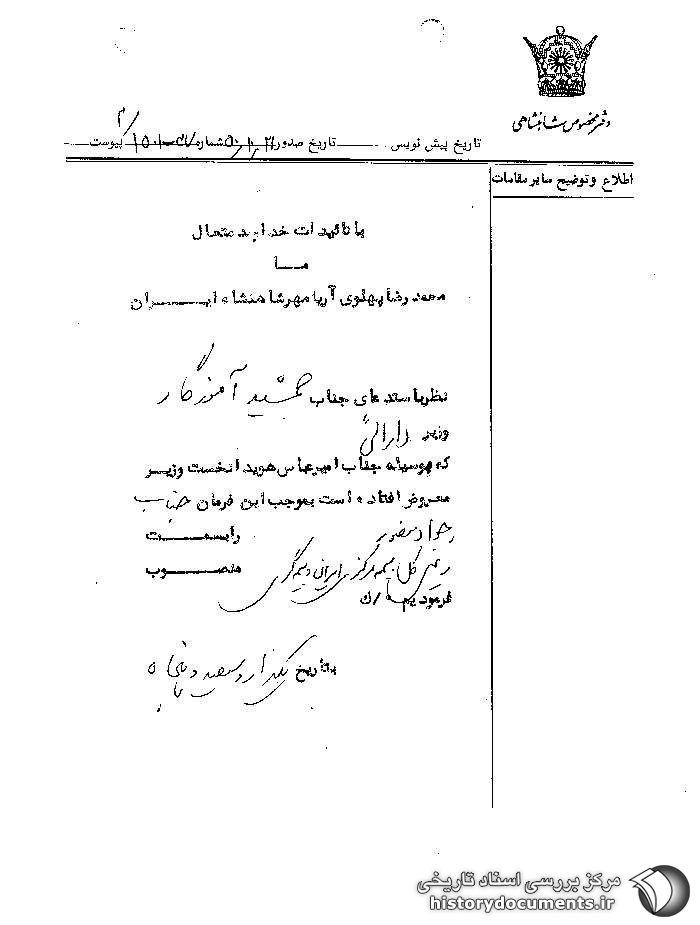 دفتر مخصوص شاهنشاهی
تاریخ پیش نویس تاریخ صدور شماره پیوست
اطلاع و توضیح سایر مقامات
با تائیدات خداوند متعال
مـا
محمد رضا پهلوی آریا مهر شاهنشاه ایـــران
نظر باستدعای جناب جمشید آموزگار
وزیر دارائی
که بوسیله جناب امیرعباس هویدا نخست وزیـر
معروض افتاده است بموجب این فرمان جناب
جواد منصور رابسمـــت
رئیس کل بیمه مرکزی ایران منصـــوب
فرمودیم
بتاریخ یکهزار و سیصد و پنجاه
مرکز بررسی اسناد تاریخی
historydocuments.ir